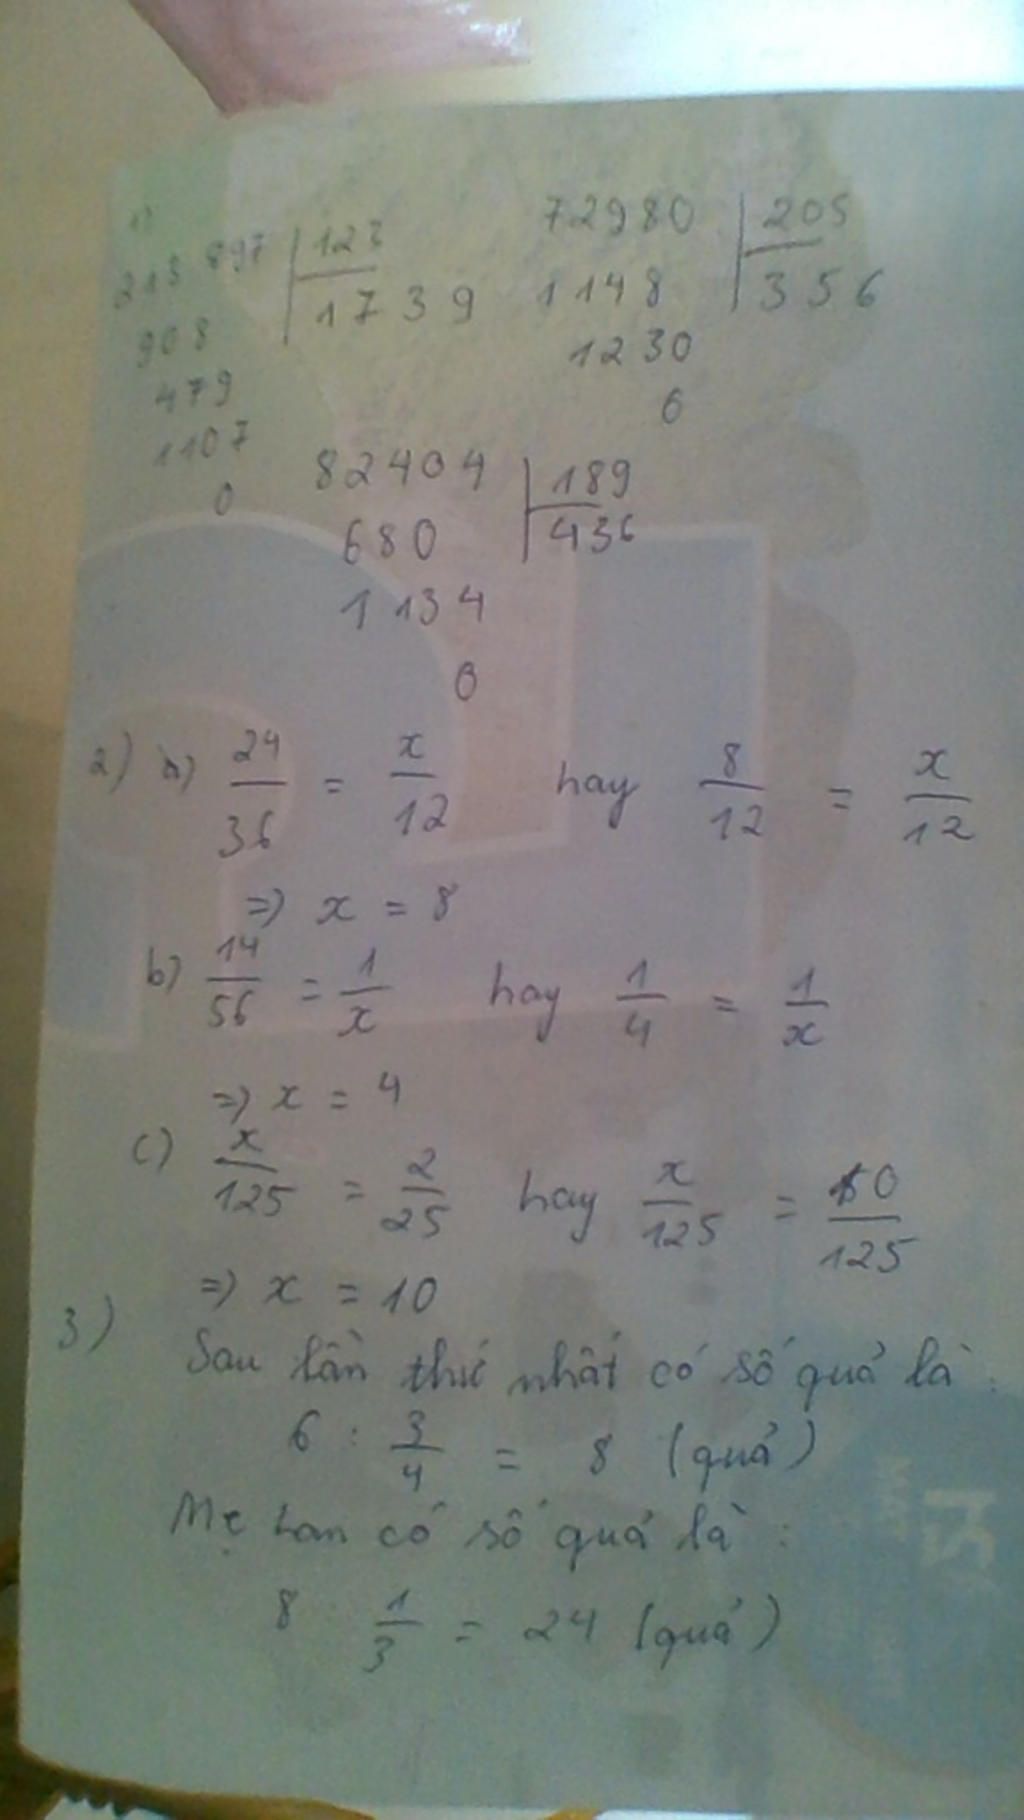 1)
213 897 | 123
1739
908
479
1107
0
72980 | 205
1148 356
1230
0
82404 | 189
680 436
1134
0
2) a) 24/36 = x/12 hay 8/12 = x/12
=> x = 8
b) 14/56 = 1/x hay 1/4 = 1/x
=> x = 4
c) x/125 = 2/25 hay x/125 = 10/125
=> x = 10
3)
Sau lần thứ nhất có số quả là :
6 : 3/4 = 8 (quả)
Mẹ Lan có số quả là :
8 1/3 = 24 (quả)